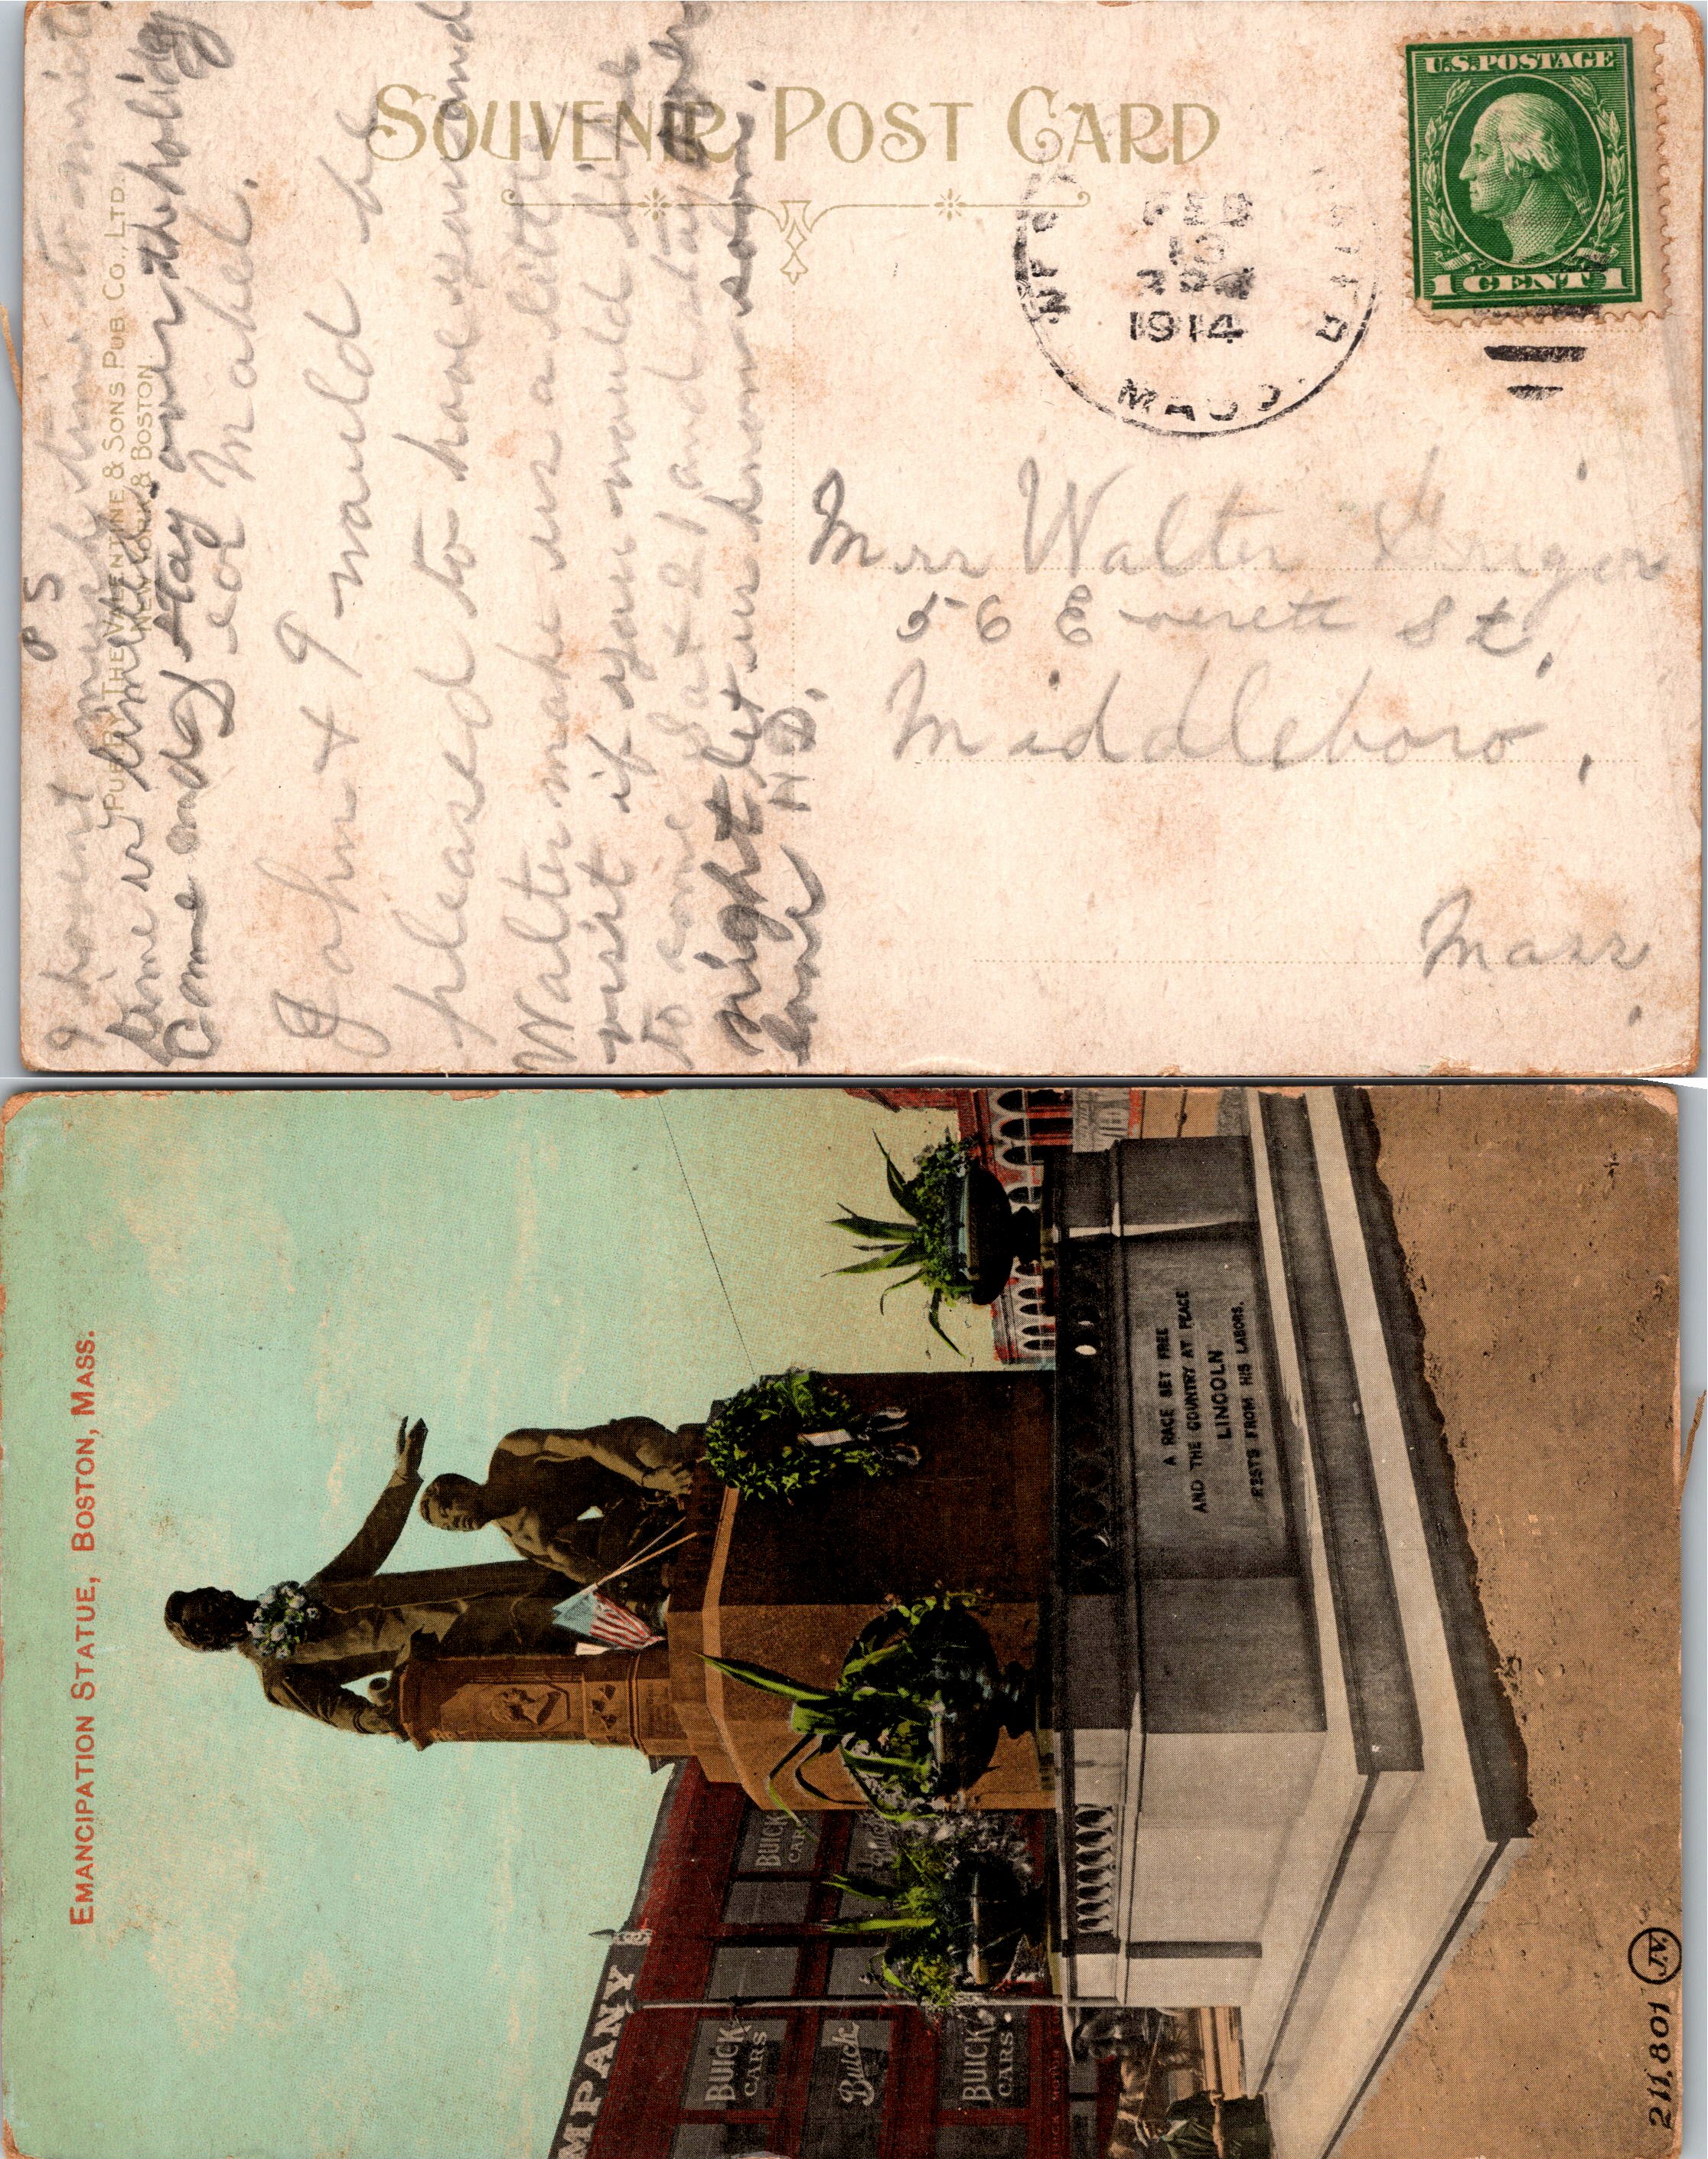 SOUVENIR POST CARD
U.S.POSTAGE
1 CENT 1
FEB
10
1914
MASS
Mrs Walter
56 Everett St.
Middleboro,
Mass.
P S
I havent much time to write
time is limited.
Come and stay over the holiday
ear Mabel.
John & I would be
pleased to have you and
Walter make us a little
visit if you would like
to come Sat 21 and stay over
night let us know soon.
love H D.
PUB. BY THE VALENTINE & SONS PUB. CO., LTD.
NEW YORK & BOSTON.
EMANCIPATION STATUE, BOSTON, MASS.
A RACE SET FREE
AND THE COUNTRY AT PEACE
LINCOLN
RESTS FROM HIS LABORS.
MPANY
BUICK
CAR
BUICK
CARS
Buick
BUICK
CARS
211,801 J.V.